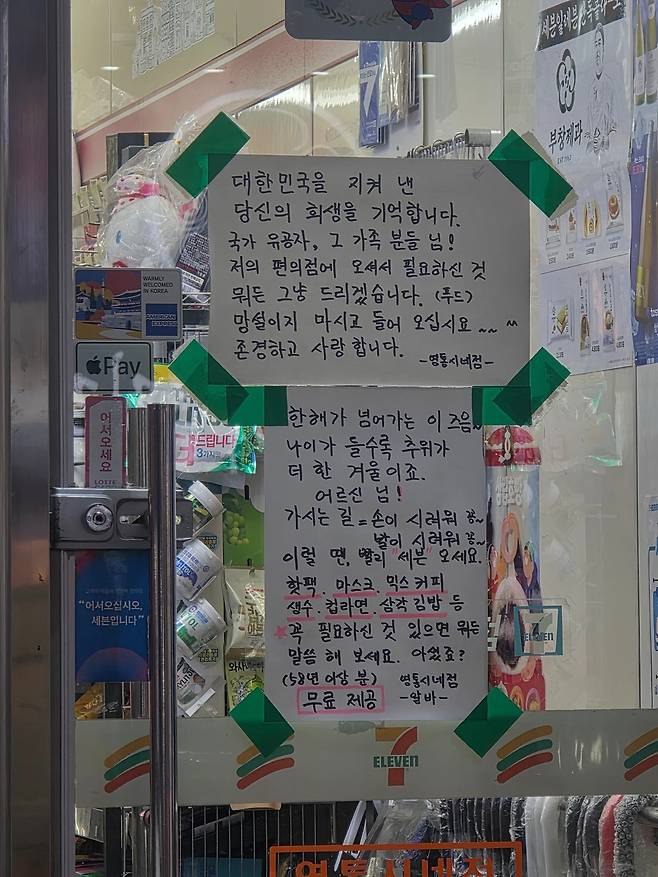 WARMLY
WELCOMED
IN KOREA
AMERICAN
EXPRESS
Pay
어서오세요
LOTTE
"어서오십시오,
세븐입니다"
드립니다
3가지
대한민국을 지켜 낸
당신의 희생을 기억합니다.
국가 유공자, 그 가족 분들 님!
저의 편의점에 오셔서 필요하신 것
뭐든 그냥 드리겠습니다. (푸드)
망설이지 마시고 들어 오십시요~~^^
존경하고 사랑합니다.
-영통시네점-
한해가 넘어가는 이즈음~
나이가 들수록 추위가
더 한 겨울이죠.
어르신 님!
가시는 길 = 손이 시려워 꽁~
발이 시려워 꽁~
이럴 땐, 빨리 "세븐" 오세요.
핫팩. 마스크. 믹스커피
생수. 컵라면. 삼각김밥 등
★ 꼭 필요하신 것 있으면 뭐든
말씀 해 보세요. 아셨죠?
(58년 이상 분) 영통시네점
무료 제공 -알바-
부창제과
7
ELEVEN
7
ELEVEN
영통시네점